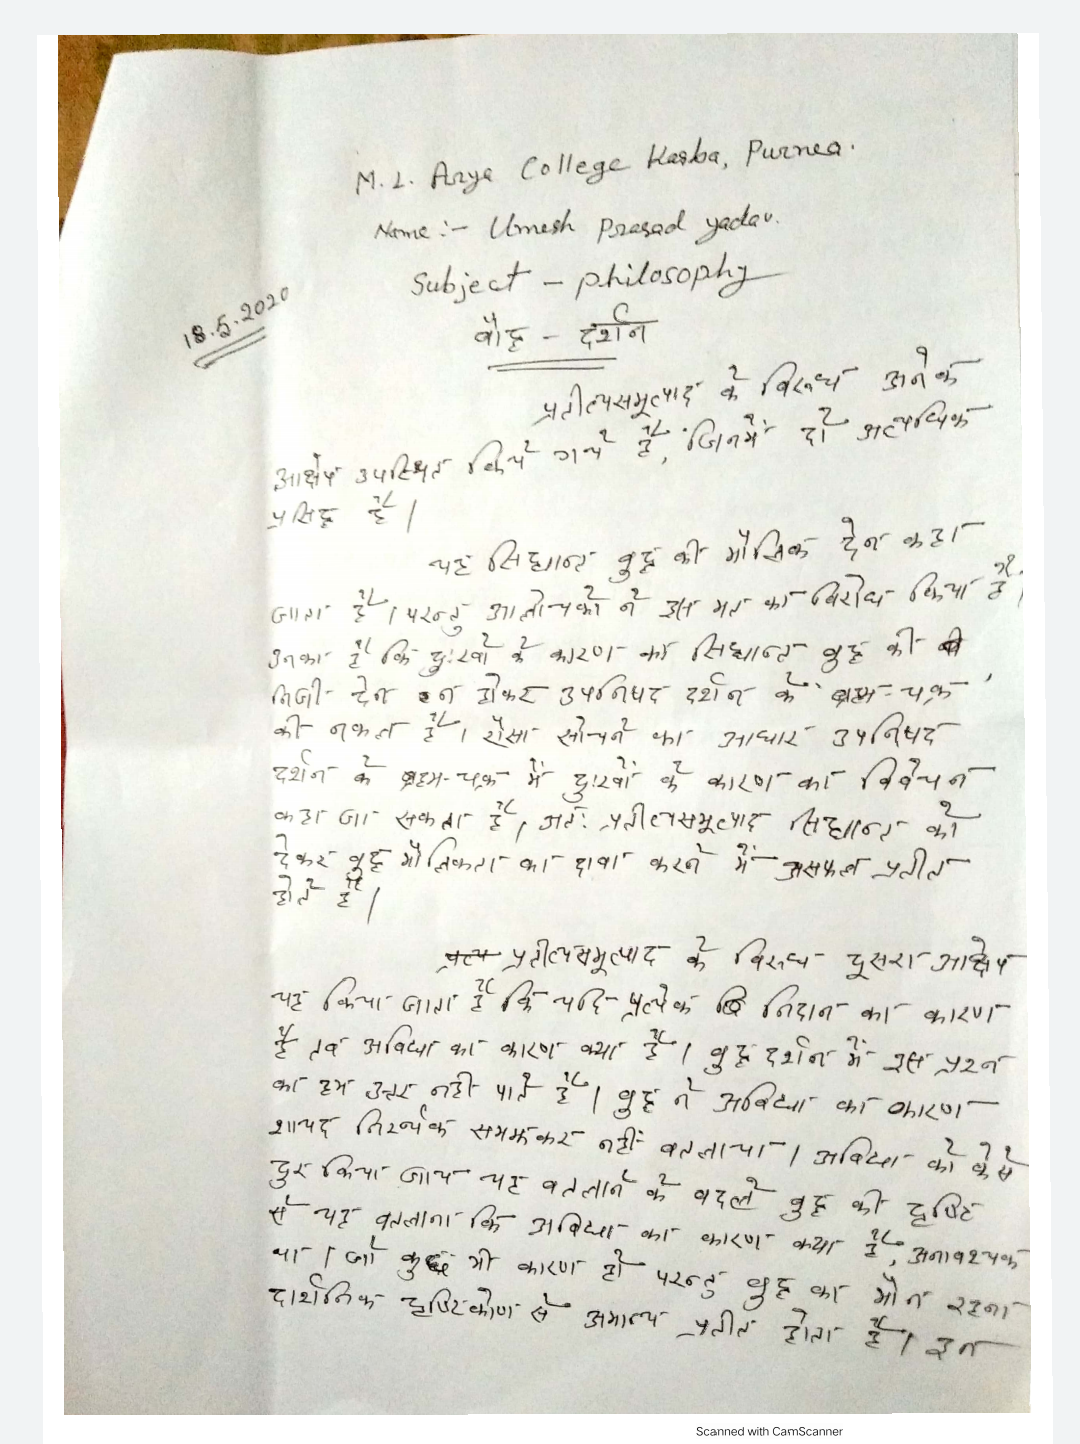 M. L. Arya College Kasba, Purnea.
Name :- Umesh Prasad yadav.
Subject - philosophy
18.5.2020
बौद्ध - दर्शन
प्रतीत्यसमुत्पाद के विरूध्द अनेक
आक्षेप उपस्थित किये गये हैं, जिनमें दो अत्यधिक
प्रसिद्ध है।
यह सिद्धान्त बुद्ध की मौलिक देन कहा
जाता है। परन्तु आलोचकों ने इस मत का विरोध किया है।
उनका है कि दुःखों के कारण का सिद्धान्त बुद्ध की
निजी देन न होकर उपनिषद दर्शन के ब्रह्म-चक्र
की नकल है। ऐसा सोचने का आधार उपनिषद
दर्शन के ब्रह्म-चक्र में दुःखों के कारण का विवेचन
कहा जा सकता है। अतः प्रतीत्यसमुत्पाद सिद्धान्त को
देकर बुद्ध मौलिकता का दावा करने में असफल प्रतीत
होते हैं।
प्रतीत्यसमुत्पाद के विरूध्द दूसरा आक्षेप
यह किया जाता है कि यदि प्रत्येक निदान का कारण
है तब अविद्या का कारण क्या है। बुद्ध दर्शन में इस प्रश्न
का हम उत्तर नही पाते हैं। बुद्ध ने अविद्या का कारण
शायद निरर्थक समझकर नहीं बतलाया। अविद्या को कैसे
दुर किया जाय यह बतलाने के बदले बुद्ध की दृष्टि
से यह बतलाना कि अविद्या का कारण क्या है, अनावश्यक
था। जो कुछ भी कारण हो परन्तु बुद्ध का मौन रहना
दार्शनिक दृष्टिकोण से अमान्य प्रतीत होता है। इन
Scanned with CamScanner